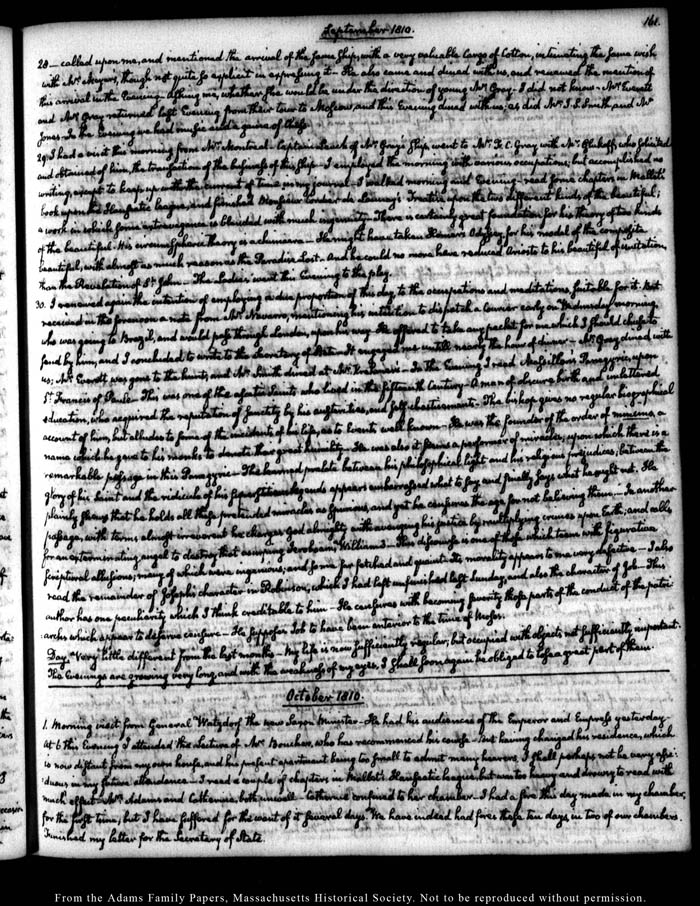 September 1810.
161.
28 — called upon me, and mentioned the arrival of the same Ship, with a very valuable Cargo of Cotton, intimating the same wish
with Mr. Meyers, though not quite so explicit in expressing it — He also came and dined with us, and renewed the mention of
this arrival in the Evening — asking me, whether she would be under the direction of young Mr. Gray. I did not know — Mr. Everett
and Mr. Gray returned last Evening from their tour to Moscow, and this Evening dined with us; as did Mr. J. S. Smith, and Mr.
Jones. In the Evening we had music and a game of chess.
29. I had a visit this morning from Mr. Montreal. Captain of Mr. Gray's Ship, went to Mr. F. C. Gray with Mr. who solicited
and obtained of him, the transaction of the business of this Ship. I employed the morning with various occupations; but accomplished no
writing, except to keep up with the current of time, in my journal. I walked morning and Evening — read some chapters in Mallet's
book upon the Hanseatic league, and finished Treatise upon the two different kinds of the beautiful;
a work in which some extravagance is blended with much ingenuity. There is certainly great foundation for his theory of two kinds
of the beautiful. His Theory is a chimæra. He might have taken Homer's Odyssey, for his model of the composite
beautiful, with almost as much reason as the Paradise Lost. And he could no more have reduced Ariosto to his beautiful of imitation,
than the Revelation of St. John. The Ladies went this Evening to the play.
30. I renewed again the intention of employing a due proportion of this day, to the occupations and meditations, suitable for it. But
received in the forenoon a note from Mr. Navarro, mentioning his intention to dispatch a Courier early on Wednesday morning,
who was going to Brazil, and would pass through London, upon his way. He offered to take any packet for me which I should chuse to
send by him, and I concluded to write to the Secretary of State. It engaged me until nearly the hour of dinner — Mr. Gray dined with
us; Mr. Everett was gone to the hunt, and Mr. Smith dined at Mr. Krehmer's — In the Evening I read Massillon's Panegyric upon
St. Francis of Paule. This was one of the Saints who lived in the fifteenth Century — A man of obscure birth and unlettered
education, who acquired the reputation of Sanctity by his austerities, and self-chastisements — The bishop gives no regular biographical
account of him, but alludes to some of the incidents of his life, as to Events well known — He was the founder of the order of minims, a
name which he gave to his monks to denote their great humility. He was also it seems a performer of miracles; upon which there is a
remarkable passage in this Panegyric. The learned prelate between his philosophical light and his religious prejudices, between the
glory of his Saint and the ridicule of his legends appears embarrassed what to say, and finally says what he ought not. He
plainly shews that he holds all these pretended miracles as spurious, and yet he censures the age for not believing them — In another
passage, with terms almost irreverent he charges God almighty with avenging his justice by multiplying crimes upon Earth; and calls
for an exterminating angel to destroy that usurping Jeroboam, William 3. This discourse is one of those which teem with figurative
scriptural allusions; many of which were ingenious; and some far fetched and quaint. Its morality appears to me very defective — I also
read the remainder of Joseph's character in Robinson, which I had left unfinished last Sunday, and also the character of Job — This
author has one peculiarity which I think creditable to him — He censures with becoming severity those parts of the conduct of the patri-
archs which appear to deserve censure — He supposes Job to have been anterior to the time of Moses.
Day. Very little different from the last months. My life is now sufficiently regular, but occupied with objects not sufficiently important.
The Evenings are growing very long, and with the weakness of my eyes, I shall soon again be obliged to lose a great part of them.
October 1810.
1. Morning visit from General Watzdorf the new Saxon Minister — He had his audiences of the Emperor and Empress yesterday.
At 6 this Evening I attended the Lecture of Mr. Boucher, who has recommenced his course — But having changed his residence, which
is now distant from my own house, and his present apartment being too small to admit many hearers, I shall perhaps not be very assi-
duous in my future attendance — I read a couple of chapters in Mallet's Hanseatic league but was too heavy and drowsy to read with
much effect. Mrs. Adams and Catherine, both unwell. Catherine confined to her chamber. I had a fire this day made in my chamber,
for the first time, but I have suffered for the want of it several days. We have indeed had fires these ten days in two of our chambers.
Finished my letter for the Secretary of State.
From the Adams Family Papers, Massachusetts Historical Society. Not to be reproduced without permission.